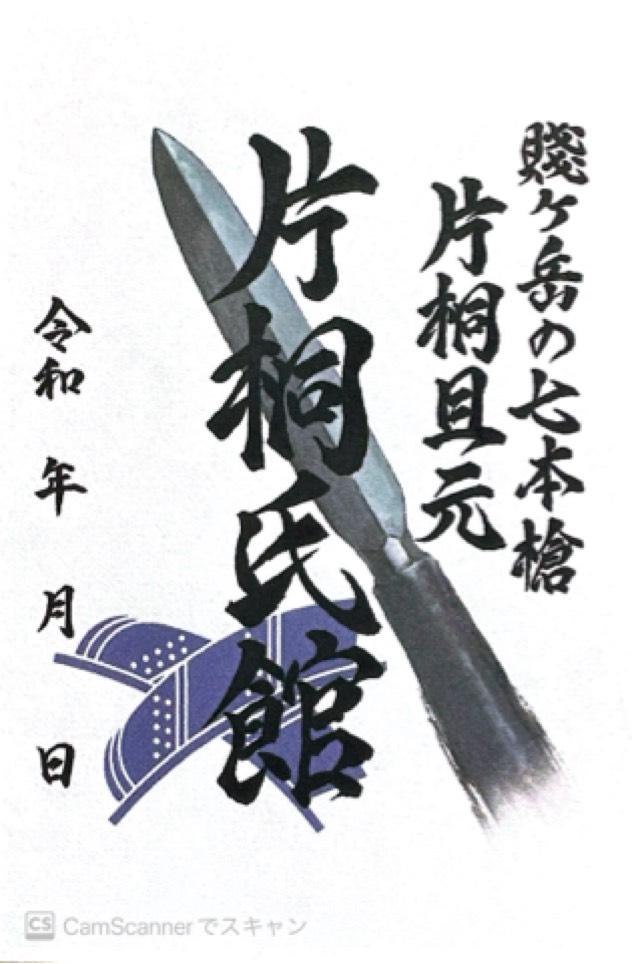 賤ヶ岳の七本槍
片桐且元
片桐氏館
令和 年 月 日
CS CamScannerでスキャン